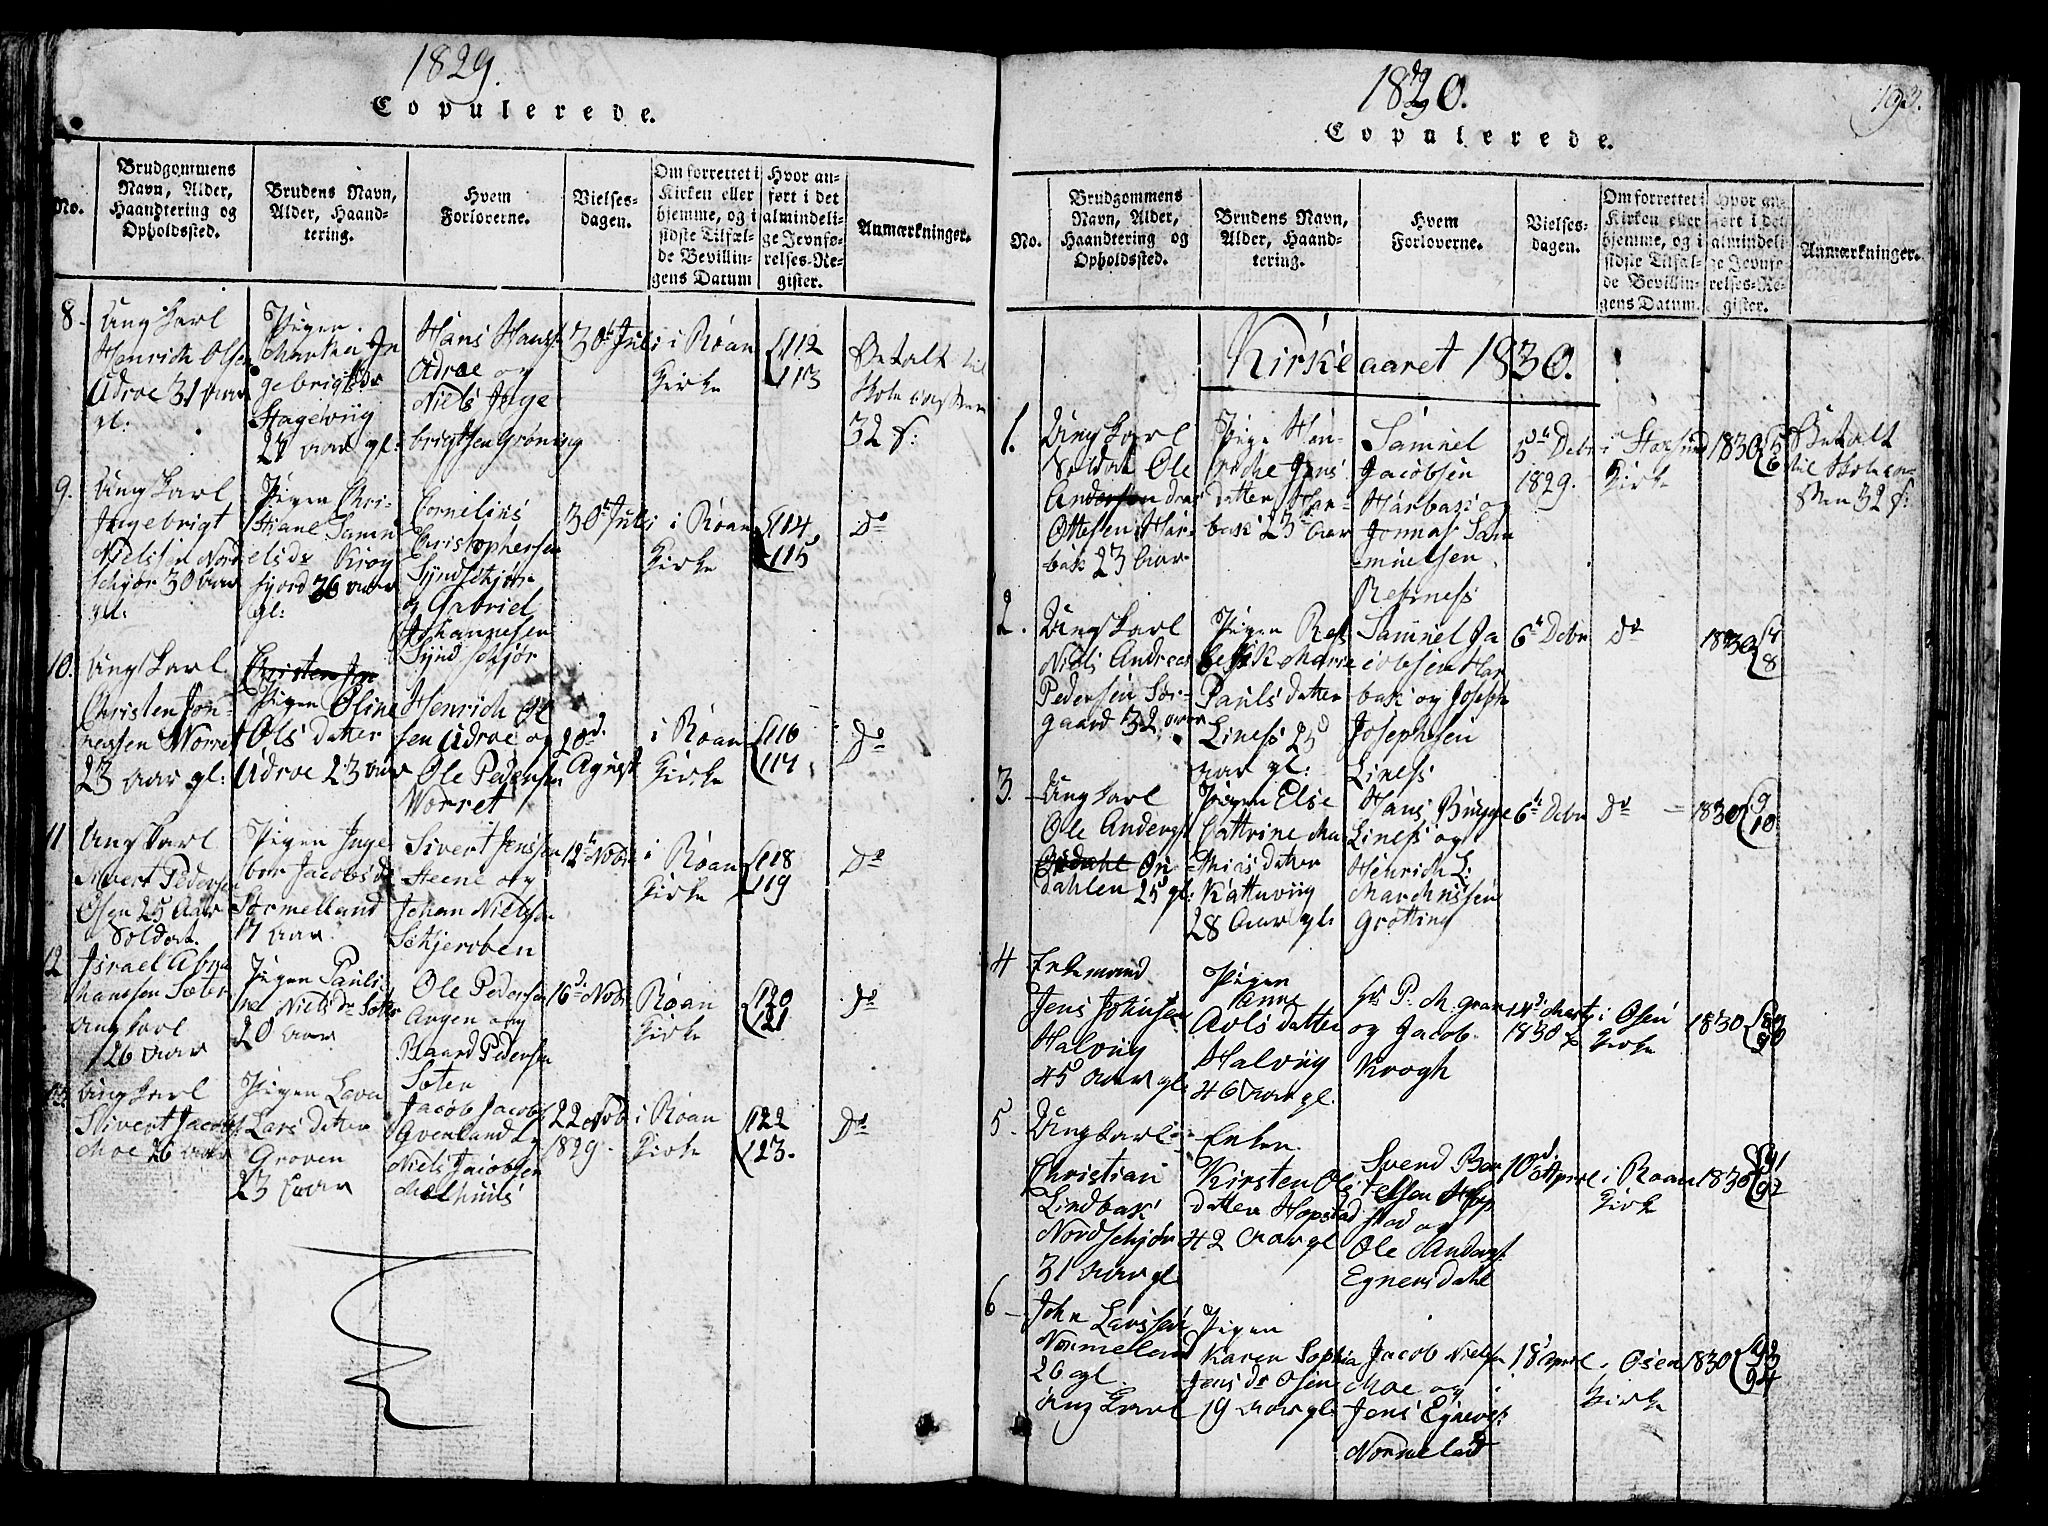 1829.
Copulerede.
No.
Brudgommens
Navn, Alder,
Haandtering og
Opholdssted.
Brudens Navn,
Alder, Haand-
tering.
Hvem
Forloverne.
Vielses-
dagen.
Om forrettet i
Kirken eller
hjemme, og i
sidste Tilfæl-
de Bevillin-
gens Datum
Hvor an-
ført i det
almindeli-
ge Jevnfø-
relses-Re-
gister.
Anmærkninger.
8.
Ungkarl
Henrich Olsen
Udroe 31 aar
gl:
Pigen
Marken In
gebrigtsdr
Hagevig
27 aar gl:
Hans Hanss
Udroe og
Niels Inge
brigtsen Grøning
30t Juli
i Roan
Kirke
112
113
Betalt til
Skolecassen
32 s:
9.
Ungkarl
Ingebrigt
Nielssen Nord
schjør 30 aar
gl:
Pigen Chri-
stiane Samu
elsdr
fjord 26 aar
gl:
Cornelius
Christophersen
Syndschjør
og Gabriel
Johannesen
Syndschjør
30t Juli
i Roan
Kirke
114
115
Do
10.
Ungkarl
Christen Jon-
nessen Worret
23 aar gl:
Pigen Oline
Ols datter
Udroe 23 aar
Henrich Ol
sen Udroe og
Ole Pedersen
Worret
20d
Agust
i Roan
Kirke
116
117
Do
11
Ungkarl
Sivert Pedersen
Osen 25 Aar
Soldat
Pigen Inge
bor Jacobsdr
Sormelland
17 aar
Sivert Jenssen
Steene og
Johan Nielssen
Schjervben
12t Nobr
i Roan
Kirke
118
119
Do
12
Israel Abra
hamsen Sæter
Ungkarl
26 aar
Pigen Pauli
ne Nielsdr Sæter
20 aar
Ole Pedersen
og
Baard Pedersen
Sæter
16d Nobr
Roan
Kirke
120
121
Do
13.
Ungkarl
Sivert Jacobs
Moe 26 aar
Pigen Lava
Lars datter
Groven
23 aar
Jacob Jacobs
Qverland og
Niels Jacobsen
Melhuus
22 Nobr
1829.
i Roan
Kirke
122
123.
Do
1830.
193.
Copulerede.
No.
Brudgommens
Navn, Alder,
Haandtering og
Opholdssted.
Brudens Navn,
Alder, Haand-
tering.
Hvem
Forloverne.
Vielses-
dagen.
Om forrettet i
Kirken eller
hjemme, og i
sidste Tilfæl-
de Bevillin-
gens Datum.
Hvor an-
ført i det
almindeli-
ge Jevnfø-
relses-Re-
gister.
Anmærkninger.
Kirkeaaret 1830.
1.
Ungkarl
Soldat Ole
Andersen dreas
Ottesen Har-
bak 23 Aar
Pige Hen-
Jens
datter Har-
bak 23 Aar
Samuel
Jacobsen
Harbak og
Jonnas Sam
muelsen
Refsness
5t Debr
1829.
i Stoxund
Kirke
1830
5
6
Betalt
til Skolecas-
sen 32 s:
2.
Ungkarl
Niels Andreas
Pedersen Sør-
gaard 32 aar
Pigen
Marie
Pauls datter
Liness 25
aar gl:
Samuel Ja
cobsen Har
bak og Joseph
Josephsen
Liness
6t Debr
Do
1830
7
8
3.
Ungkarl
Ole Andersst
dahlen 25 gl:
Pigen Else
Cattrine Ma
thiasdatter
Kattuviig
28 Aar gl:
Hans Bugge
Liness og
Henrich L.
Grøtting
6t Debr
Do
1830
9
10
4
Enkemand
Jens Johnsen
Halviig
45 aar gl:
Pigen
Anne
Avls datter
Halviig
46 aar gl.
Hr P. M. Gran
og Jacob
Krogh
14d Marty
1830
i Osen
Kirke
1830
89
90
5.
Ungkarl
Christian
Lindbak
Nordschjør
31 aar gl.
Enken
Kirsten Ols
datter Hopstad
42 aar gl
Svend Ben
telsen Hop
stad og
Ole Andersst
Egnersdahl
10d April
i Roan
Kirke
1830
91
92
6
John Larssen
Normeland
26 gl.
Ungkarl
Pigen
Karen Sophia
Jensdr Osen
19 aar gl.
Jacob Nielsen
Moe og
Jens Egnervst
Normelad
18 April
i Osen
Kirke
1830
93
94